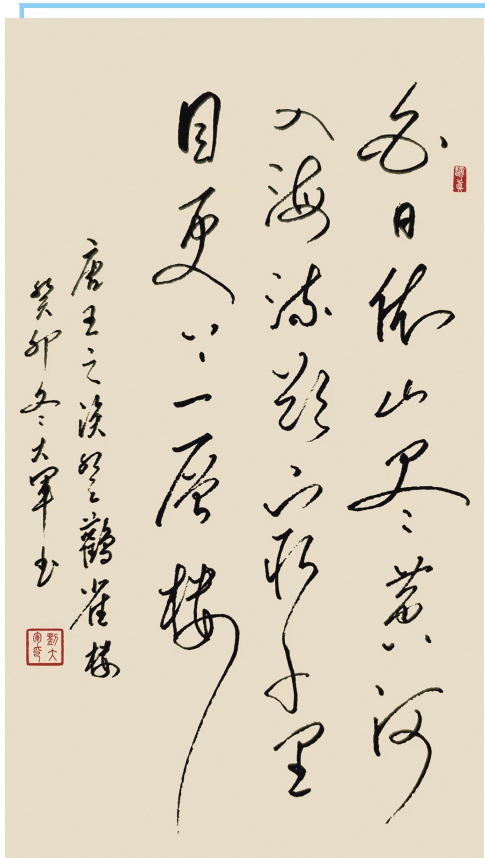 白日依山尽黄河
入海流欲穷千里
目更上一層楼
唐王之涣登鸛雀楼
癸卯冬大軍书
劉大軍印